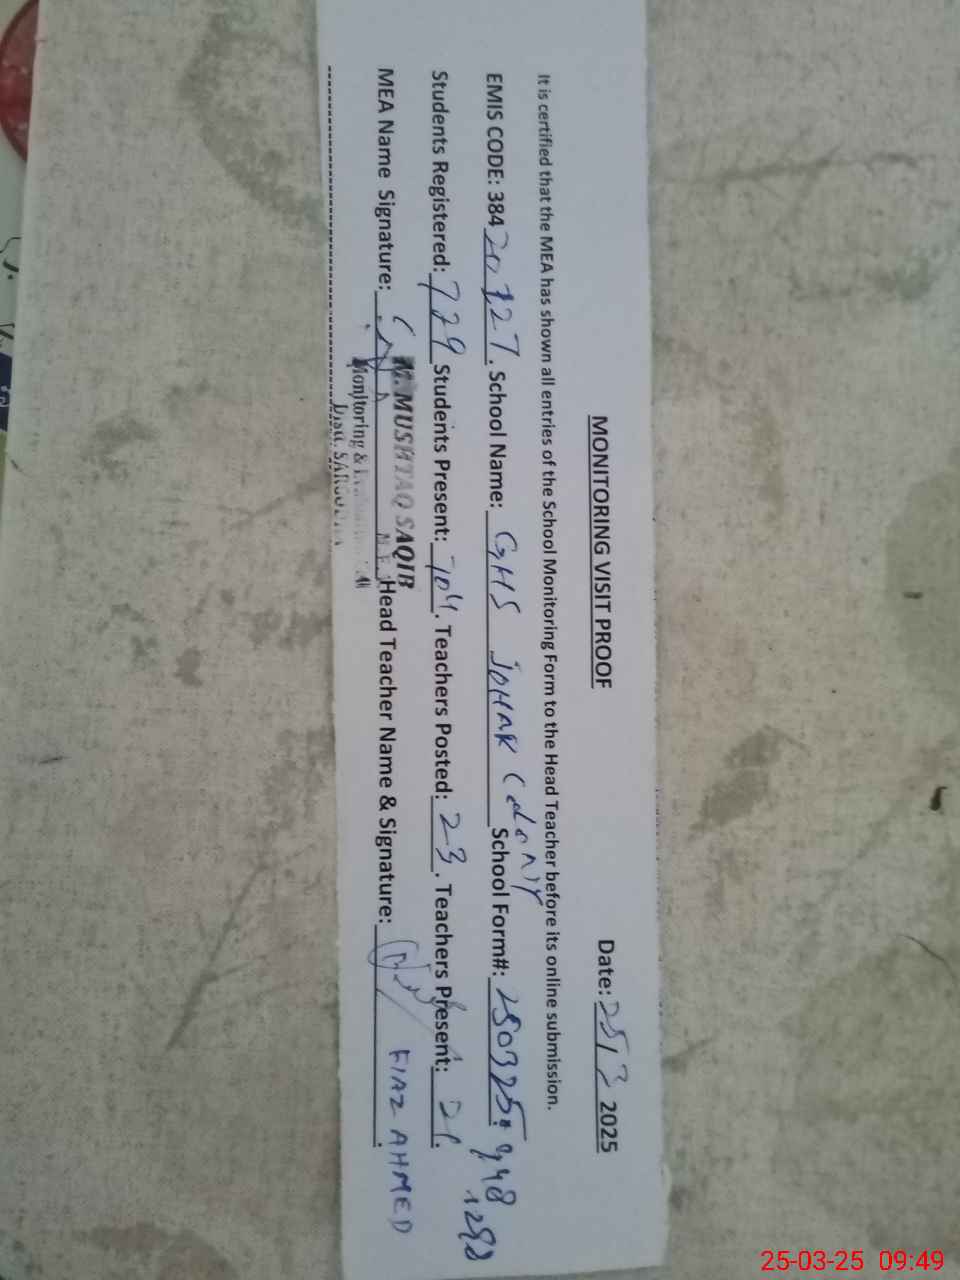 MONITORING VISIT PROOF Date: 25/3 2025
It is certified that the MEA has shown all entries of the School Monitoring Form to the Head Teacher before its online submission.
EMIS CODE: 38420127. School Name: GHS JOHAR Colony School Form#: 250325.
Students Registered: 729 Students Present: 704. Teachers Posted: 23. Teachers Present:
MEA Name Signature: Head Teacher Name & Signature: FIAZ AHMED
M. MUSHTAQ SAQIB
Monitoring &
25-03-25 09:49